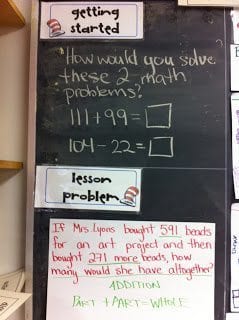 getting
started
How would you solve
these 2 math
problems?
111+99=
104-22=
lesson
problem
If Mrs. Lyons bought 591 beads
for an art project and then
bought 271 more beads, how
many would she have altogether?
ADDITION
PART + PART = WHOLE